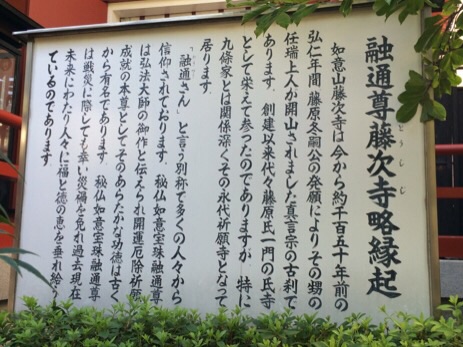 融通尊藤次寺略縁起
とうじじ
如意山藤次寺は今から約千百五十年前の
弘仁年間 藤原冬嗣公の発願により その甥の
任瑞上人が開山されました真言宗の古刹で
あります。創建以来代々藤原氏一門の氏寺
として栄えて参ったのでありますが 特に
九條家とは関係深くその永代祈願寺となって
居ります。
「融通さん」と言う別称で多くの人々から
信仰されております。秘仏如意宝珠融通尊
は弘法大師の御作と伝えられ開運厄除祈願
成就の本尊としてそのあらたかな功徳は古く
から有名であります。秘仏如意宝珠融通尊
は戦災に際しても幸い災禍を免れ過去現在
未来にわたり人々に福と徳の恵を垂れ給う
ているのであります。